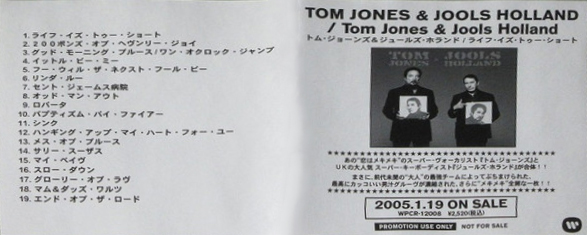 1. ライフ・イズ・トゥー・ショート
2. 200ポンズ・オブ・ヘヴンリー・ジョイ
3. グッド・モーニング・ブルース/ワン・オクロック・ジャンプ
4. イットル・ビー・ミー
5. フー・ウィル・ザ・ネクスト・フール・ビー
6. リンダ・ルー
7. セント・ジェームス病院
8. オッド・マン・アウト
9. ロバータ
10. バプティズム・バイ・ファイアー
11. シンク
12. ハンギング・アップ・マイ・ハート・フォー・ユー
13. メス・オブ・ブルース
14. サリー・スーザス
15. マイ・ベイヴ
16. スロー・ダウン
17. グローリー・オブ・ラヴ
18. マム&ダッズ・ワルツ
19. エンド・オブ・ザ・ロード
TOM JONES & JOOLS HOLLAND
/ Tom Jones & Jools Holland
トム・ジョーンズ&ジュールズ・ホランド/ライフ・イズ・トゥー・ショート
TOM JONES JOOLS HOLLAND
あの"恋はメキメキ"のスーパー・ヴォーカリスト『トム・ジョーンズ』と
UKの大人気 スーパー・キーボーディスト『ジュールズ・ホランド』が合体!!
まさに、前代未聞の"大人"の最強チームによってぶちまけられた、
最高にカッコいい男汁グルーヴが濃縮された、さらに"メキメキ"全開な一枚!!
2005.1.19 ON SALE
WPCR-12008 ¥2,520(税込)
PROMOTION USE ONLY NOT FOR SALE